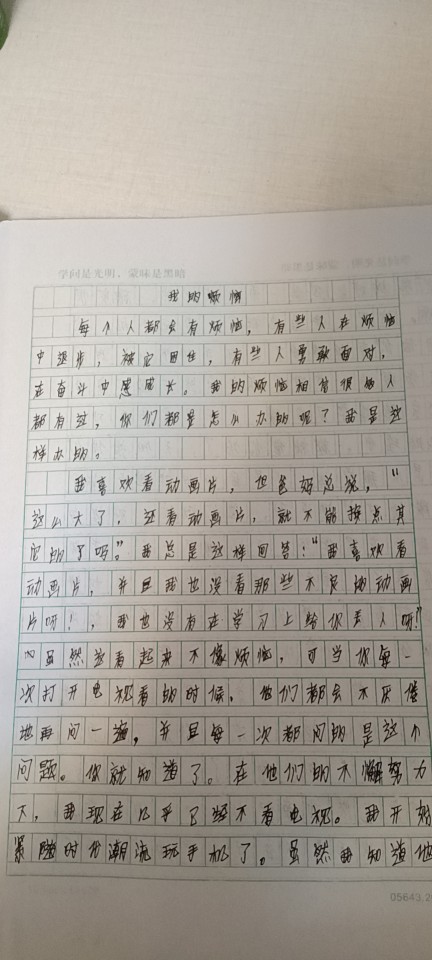 学问是光明，蒙昧是黑暗
我的烦恼
每个人都会有烦恼，有些人在烦恼
中退步，被它困住，有些人勇敢面对，
在奋斗中成长。我的烦恼相信很多人
都有过，你们都是怎么办的呢？我是这
样办的。
我喜欢看动画片，但爸妈总说，“
这么大了，还看动画片，就不能换点其
它的了吗。”我总是这样回答：“我喜欢看
动画片，并且我也没看那些不良的动画
片呀！，我也没有在学习上给你丢人呀？”
虽然这看起来不像烦恼，可当你每一
次打开电视看的时候，他们都会不厌倦
地再问一遍，并且每一次都问的是这个
问题。你就知道了。在他们的不懈努力
下，我现在几乎已经不看电视。我开始
紧随时代潮流玩手机了。虽然我知道他
05643.2